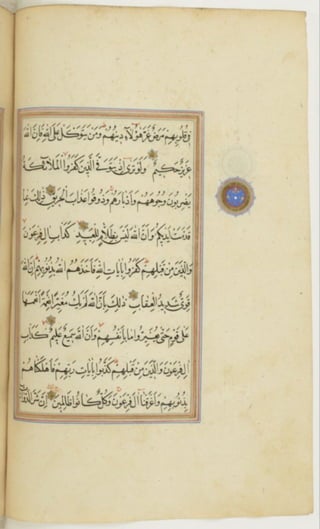 فِي قُلُوبِهِمْ مَرَضٌ غَرَّ هٰؤُلَاءِ دِينُهُمْ وَمَنْ يَتَوَكَّلْ عَلَى اللّٰهِ فَاِنَّ اللّٰهَ
عَزِيزٌ حَكِيمٌ وَلَوْ تَرٰى اِذْ يَتَوَفَّى الَّذِينَ كَفَرُوا الْمَلَائِكَةُ
يَضْرِبُونَ وُجُوهَهُمْ وَاَدْبَارَهُمْ وَذُوقُوا عَذَابَ الْحَرِيقِ ذٰلِكَ بِمَا
قَدَّمَتْ اَيْدِيكُمْ وَاَنَّ اللّٰهَ لَيْسَ بِظَلَّامٍ لِلْعَبِيدِ كَدَابِ اٰلِ فِرْعَوْنَ
وَالَّذِينَ مِنْ قَبْلِهِمْ كَفَرُوا بِاٰيَاتِ اللّٰهِ فَاَخَذَهُمُ اللّٰهُ بِذُنُوبِهِمْ اِنَّ اللّٰهَ
قَوِيٌّ شَدِيدُ الْعِقَابِ ذٰلِكَ بِاَنَّ اللّٰهَ لَمْ يَكُ مُغَيِّرًا نِعْمَةً اَنْعَمَهَا
عَلٰى قَوْمٍ حَتّٰى يُغَيِّرُوا مَا بِاَنْفُسِهِمْ وَاَنَّ اللّٰهَ سَمِيعٌ عَلِيمٌ كَدَابِ
اٰلِ فِرْعَوْنَ وَالَّذِينَ مِنْ قَبْلِهِمْ كَذَّبُوا بِاٰيَاتِ رَبِّهِمْ فَاَهْلَكْنَاهُمْ
بِذُنُوبِهِمْ وَاَغْرَقْنَا اٰلَ فِرْعَوْنَ وَكُلٌّ كَانُوا ظَالِمِينَ اِنَّ شَرَّ الدَّوَابِّ